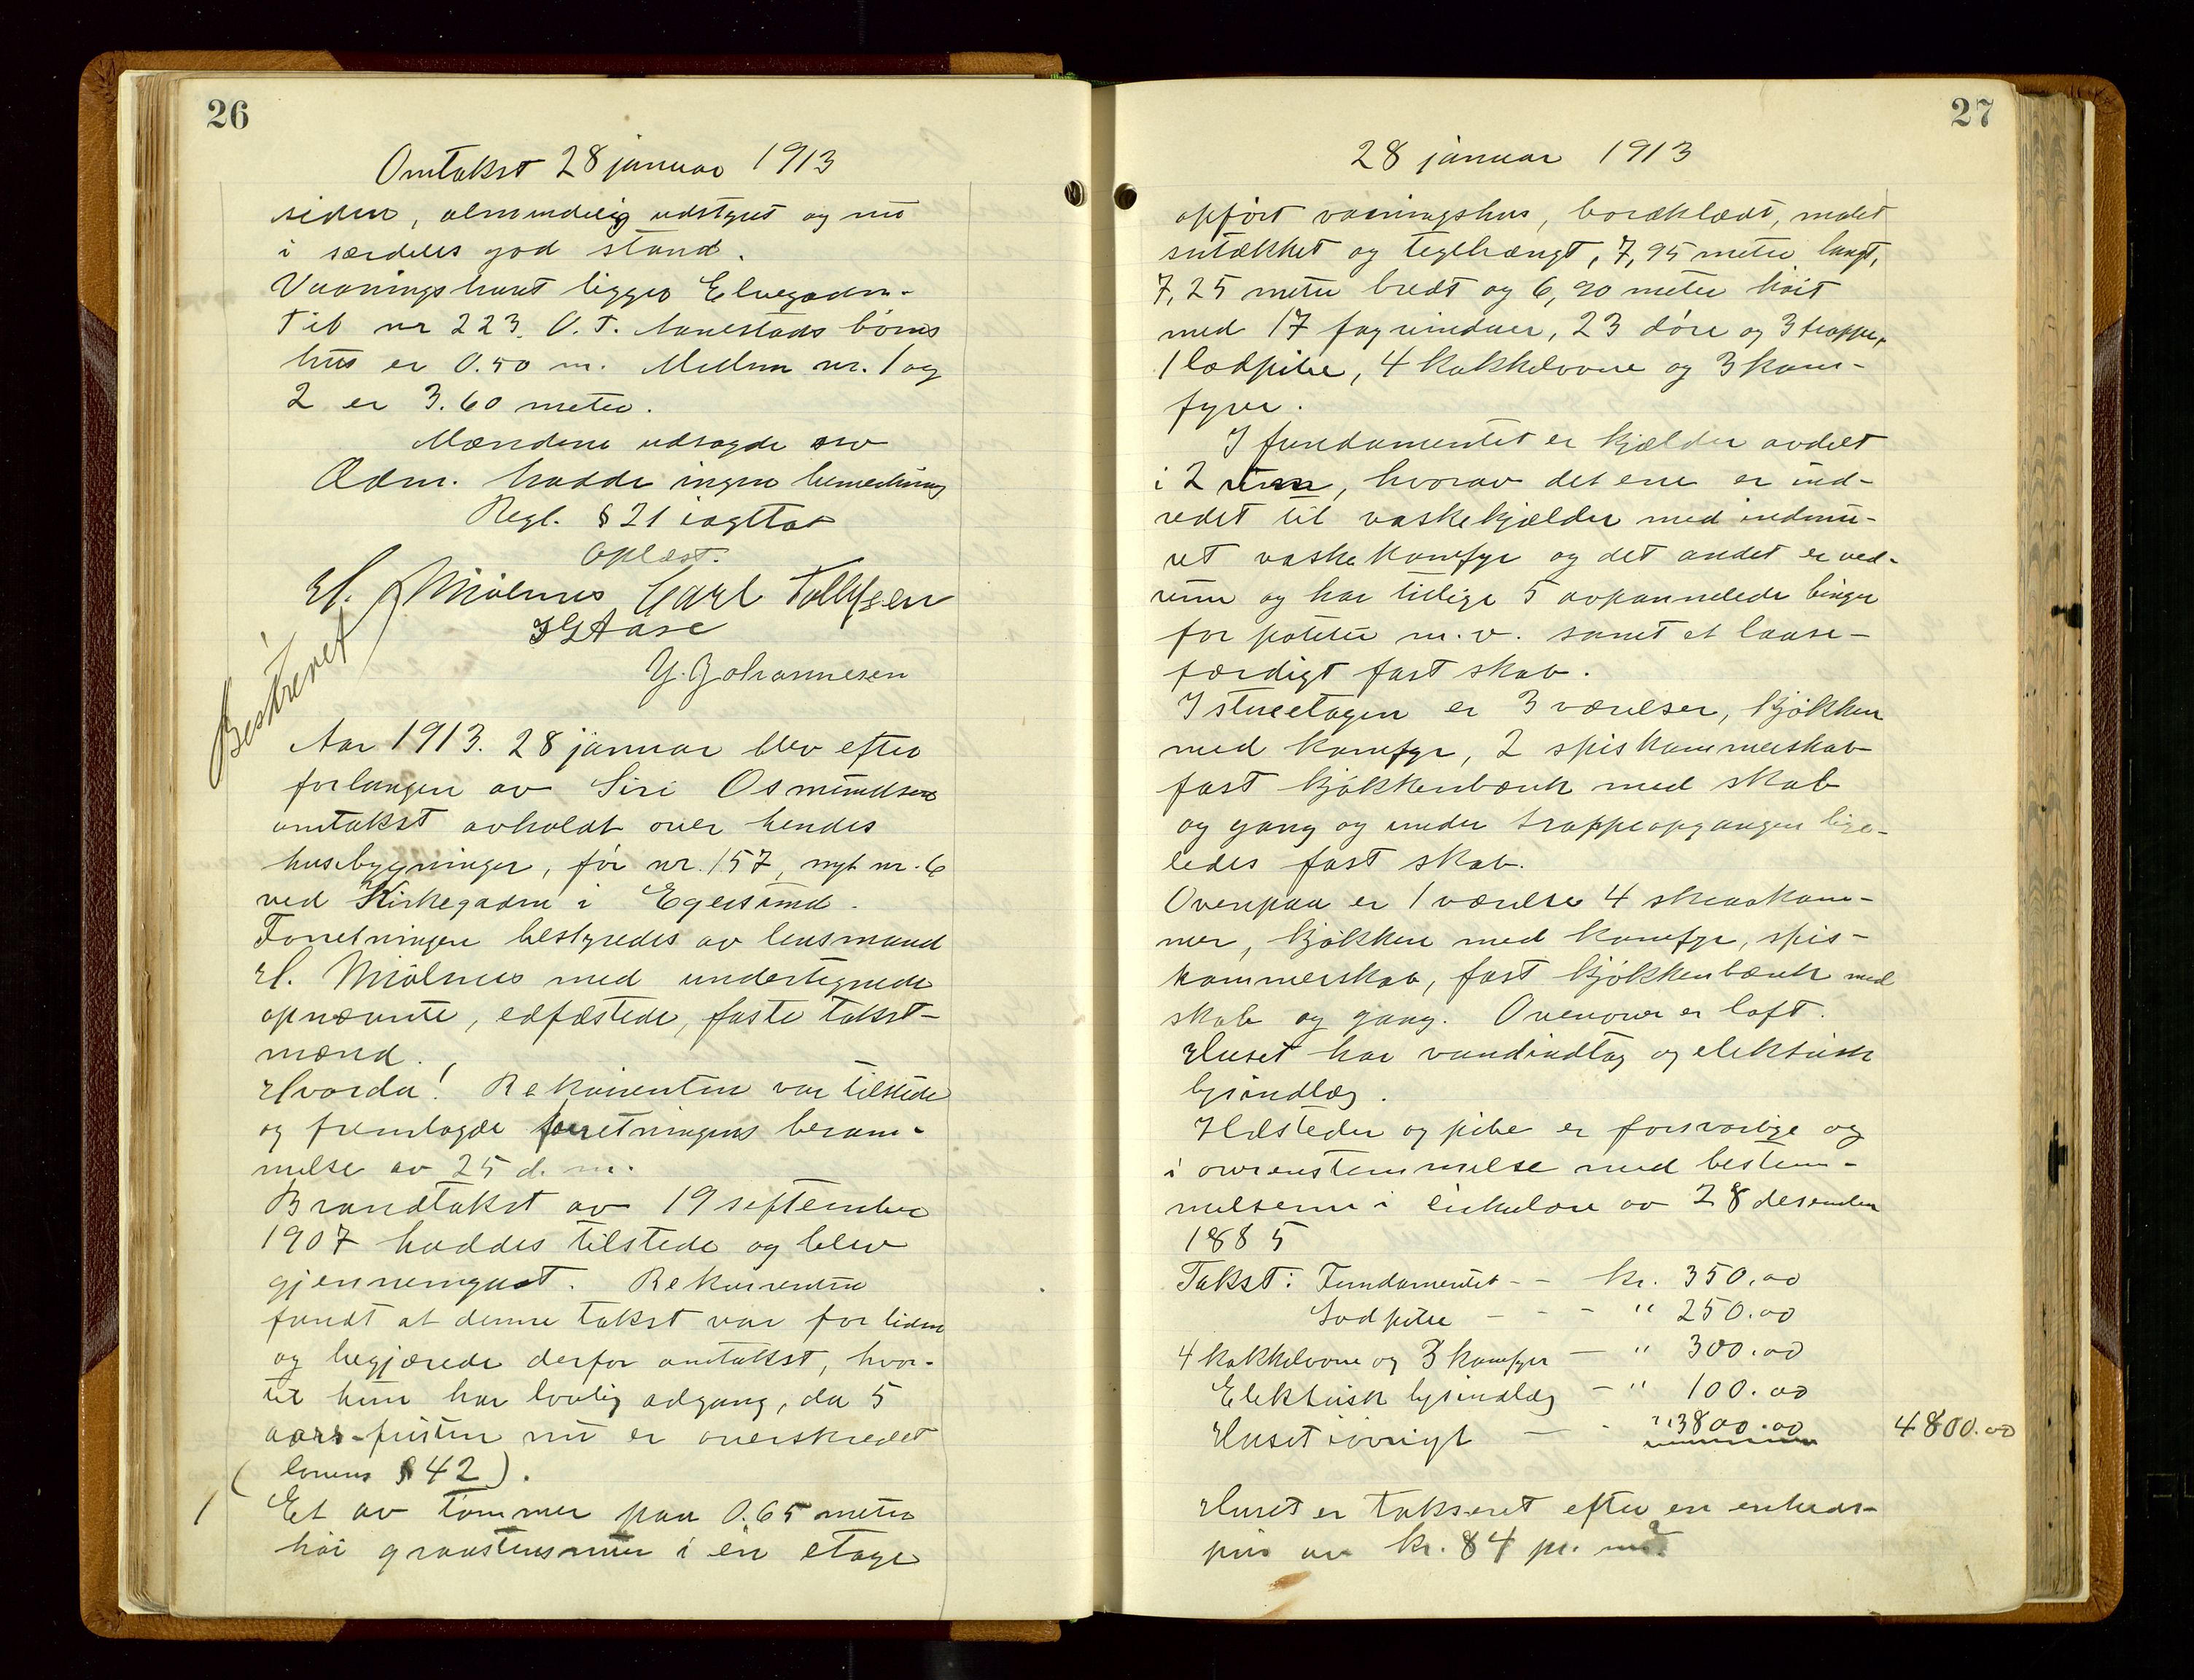 26
Omtakst 28 januar 1913
siden, almindelig udstyret og nu
i særdeles god stand.
Vaaningshuset ligger Elvegaden.
Til nr 223 O. T. Aanestads børns
hus er 0.50 m. Mellem nr. 1 og
2 er 3.60 meter.
Mændene udsagde
Adm. hadde ingen bemerkning
Regl. § 21 iagttat
Oplæst.
H. Mjølnes Carl Tollefsen
Aase
Y. Johannesen
Beskrevet
Aar 1913. 28 januar blev efter
forlangen av Siri Osmundsen
omtakst avholdt over hendes
husebygninger, før nr. 157, nyt nr. 6
ved Kirkegaden i Egersund.
Forretningen bestyredes av lensmand
H. Mjølnes med undertegnede
opnævnte, edfæstede, faste takst-
mænd.
Hvorda! Rekvirenten var tilstede
og fremlagde forretningens beram-
melse av 25 d. m.
Brandtakst av 19 september
1907 haddes tilstede og blev
gjennemgaat. Rekvirenten
fandt at denne takst var for liden
og begjærede derfor omtakst, hvor-
til hun har lovlig adgang, da 5
aars-fristen nu er overskredet
(lovens § 42).
1 Et av tømmer paa 0.65 meter
høi graastensmur i en etage
27
28 januar 1913
opført vaaningshus, bordklædt, malet
sutækket og teglhængt, 7,95 meter langt,
7,25 meter bredt og 6,90 meter høit
med 17 fag vinduer, 23 døre og 3 trapper,
1 lodpibe, 4 kakkelovne og 3 kom-
fyrer.
I fundamentet er kjælder avdelt
i 2 rum, hvorav det ene er ind-
redet til vaskekjælder med indmu-
ret vaskekomfyr og det andet er ved-
rum og har tillige 5 avpannelede binger
for poteter m.v. samt et laase-
færdigt fast skab.
I stueetagen er 3 værelser, kjøkken
med komfyr, 2 spiskammerskab
fast kjøkkenbænk med skab
og gang og under trappeopgangen lige-
ledes fast skab.
Ovenpaa er 1 værelse 4 skraakam-
mer, kjøkken med komfyr, spis-
kammerskab, fast kjøkkenbænk med
skab og gang. Ovenover er loft.
Huset har vandindtag og elektrisk
lysindlæg.
Ildsteder og pibe er forsvarlige og
i overenstemmelse med bestem-
melserne i cirkulære av 28 desember
1885
Takst: Fundamentet - - kr. 350.00
Lodpibe - - - " 250.00
4 kakkelovne og 3 komfyr - " 300.00
Elektrisk lysindlæg - " 100.00
Huset iøvrigt - - " 3800.00 4800.00
Huset er takseret efter en enheds-
pris av kr. 84 pr. m²